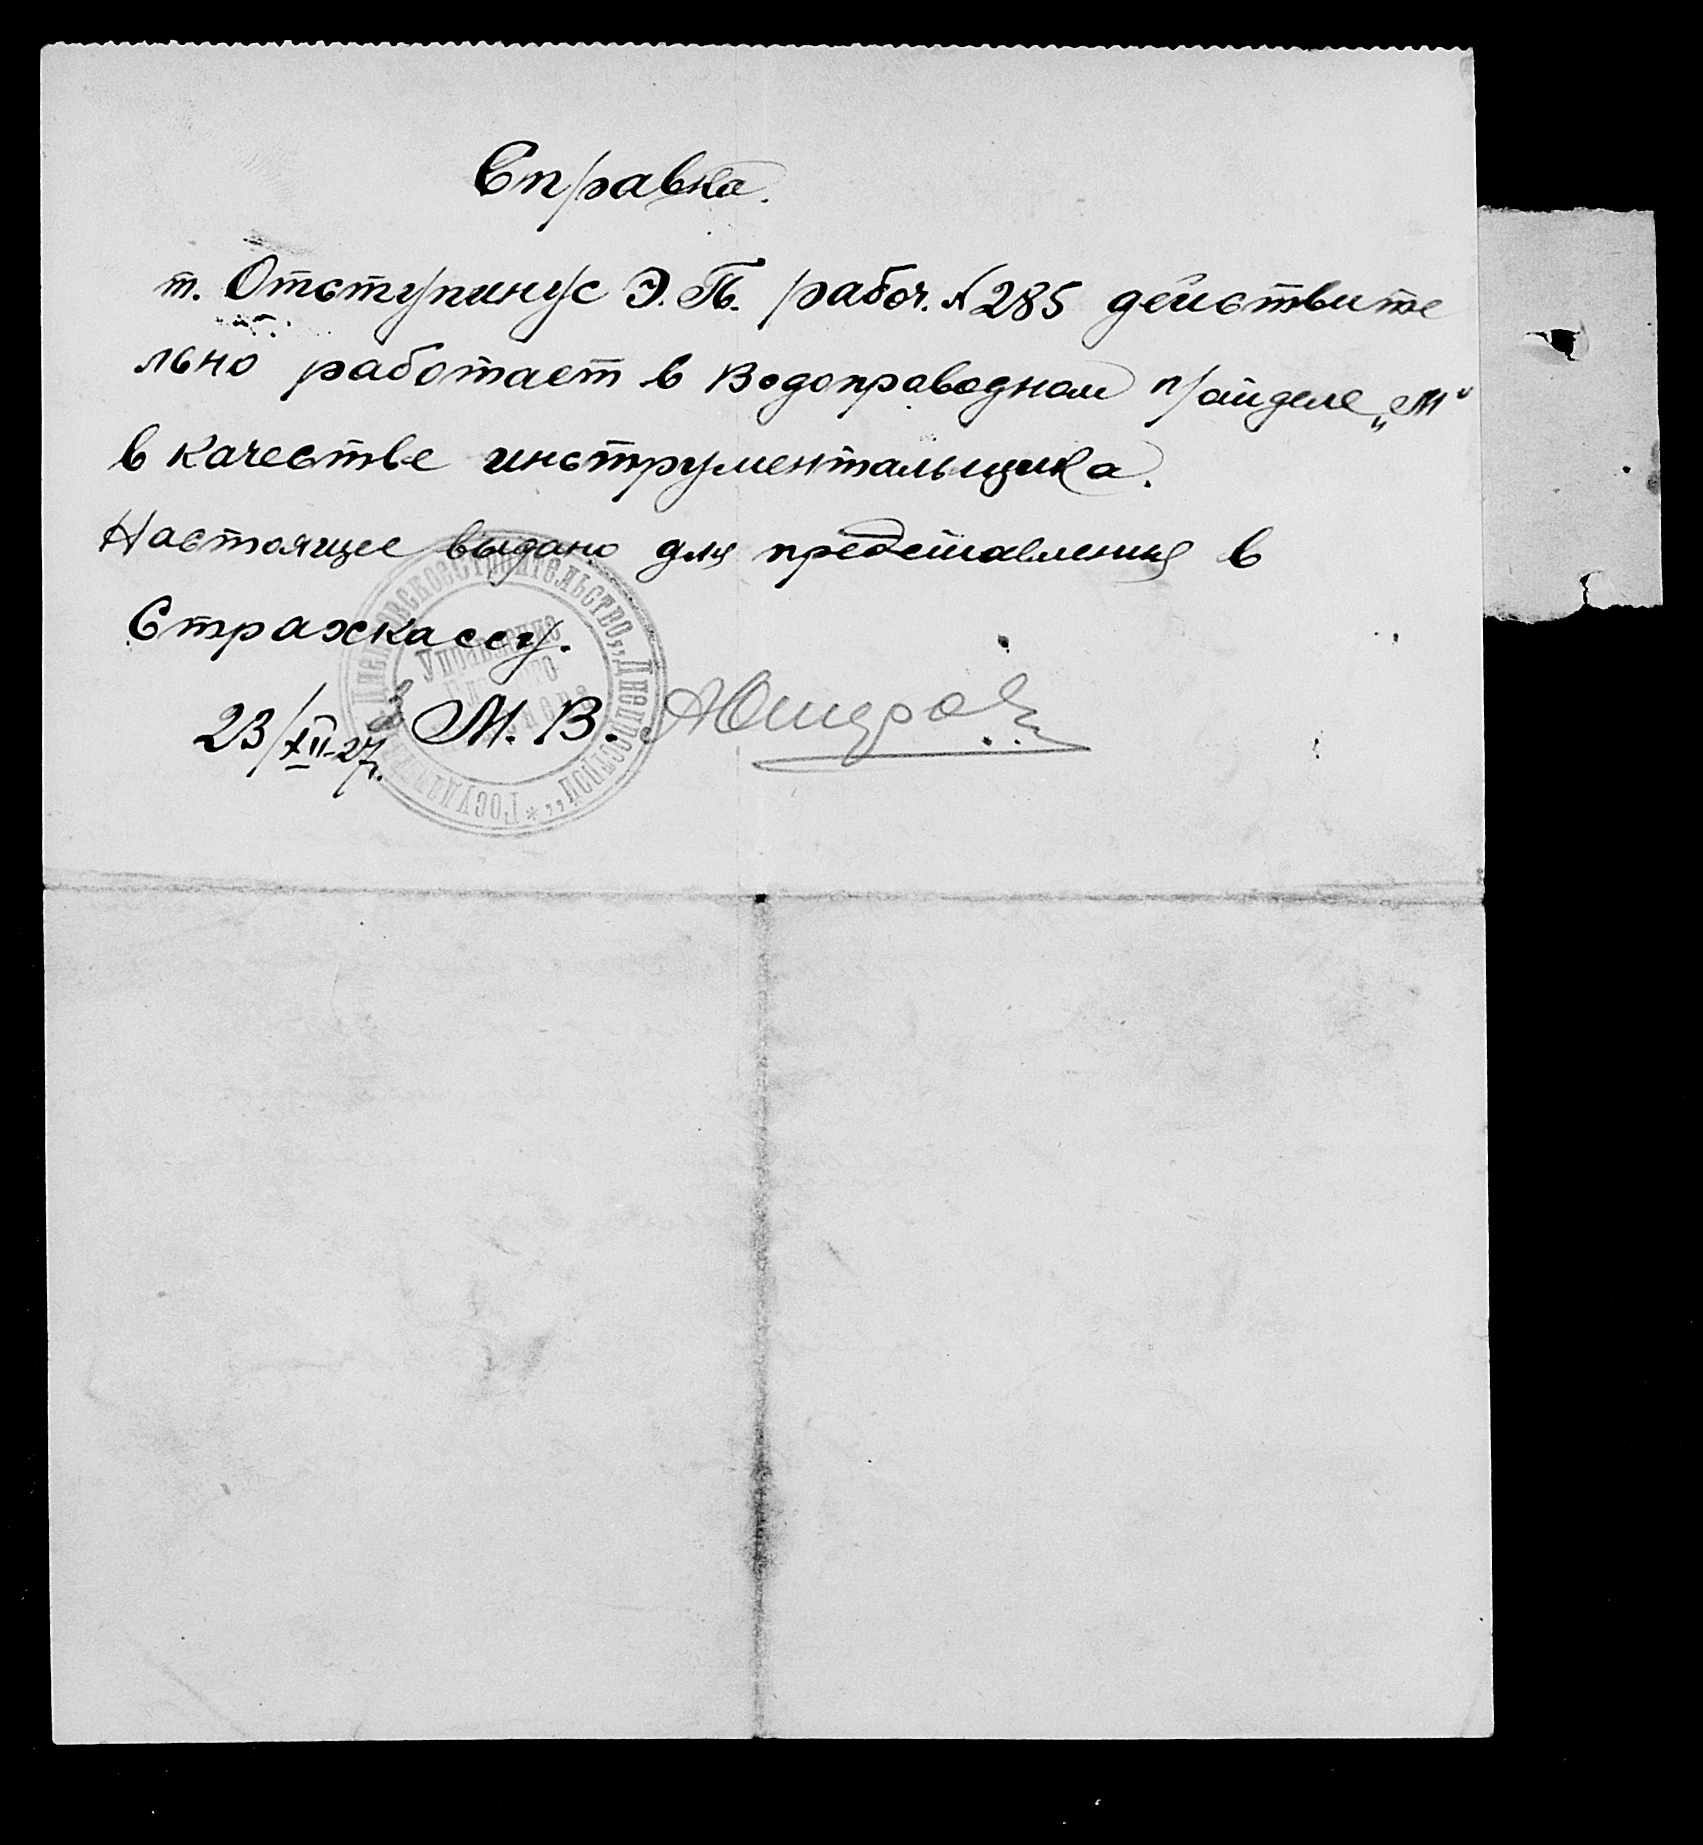 Справка.
т. Отступинус Э. П. рабоч. № 285 действите
льно работает в Водоправодном „М“
в качестве инструментальщика.
Настоящее выдано для представления в
Страхкассу.
23/XII-27г. З М. В.
Государственное Днепровское Строительство „Днепрострой“ *
Управление